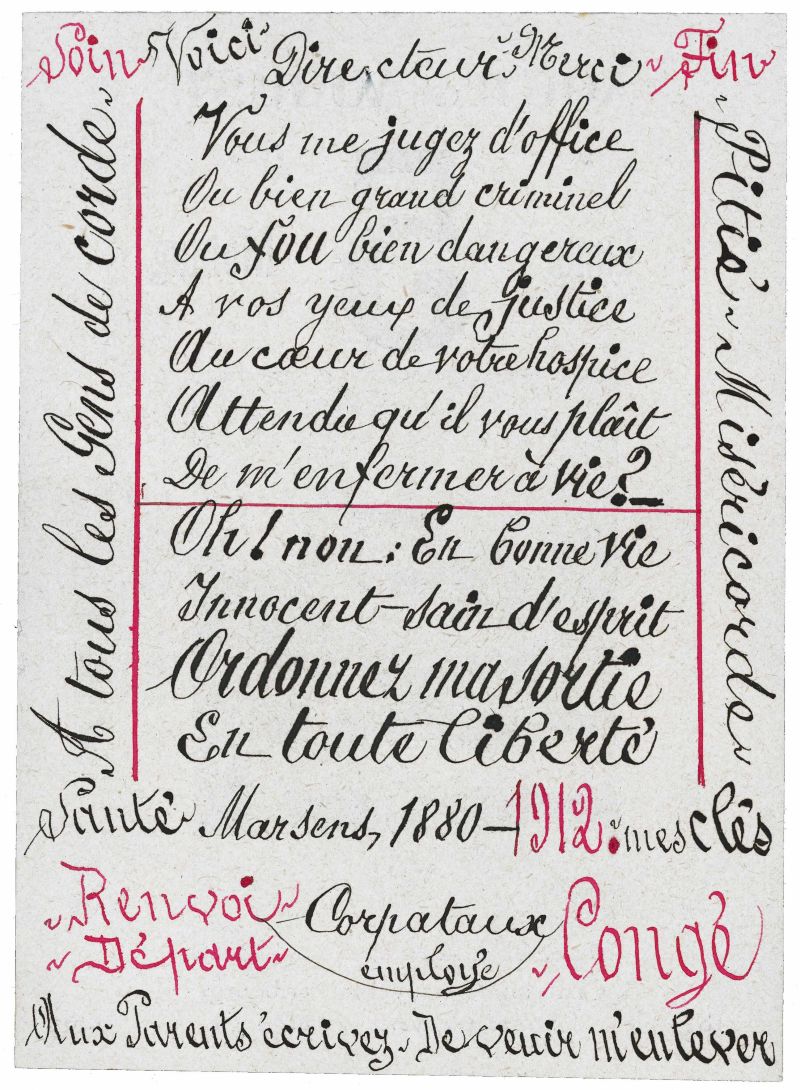 Soin Voici Directeur Merci Fin
A tous les Gens de corde
Vous me jugez d'office
Ou bien grand criminel
Ou fou bien dangereux
A vos yeux de justice
Au cœur de votre hospice
Attendu qu'il vous plaît
De m'enfermer à vie?
Oh! non: En bonne vie
Innocent-sain d'esprit
Ordonnez ma sortie
En toute liberté
Pitié Miséricorde
Santé Marsens, 1880-1912. mes clés
Renvoi
Départ
Corpataux
employé
Congé
Aux Parents écrivez De venir m'enlever